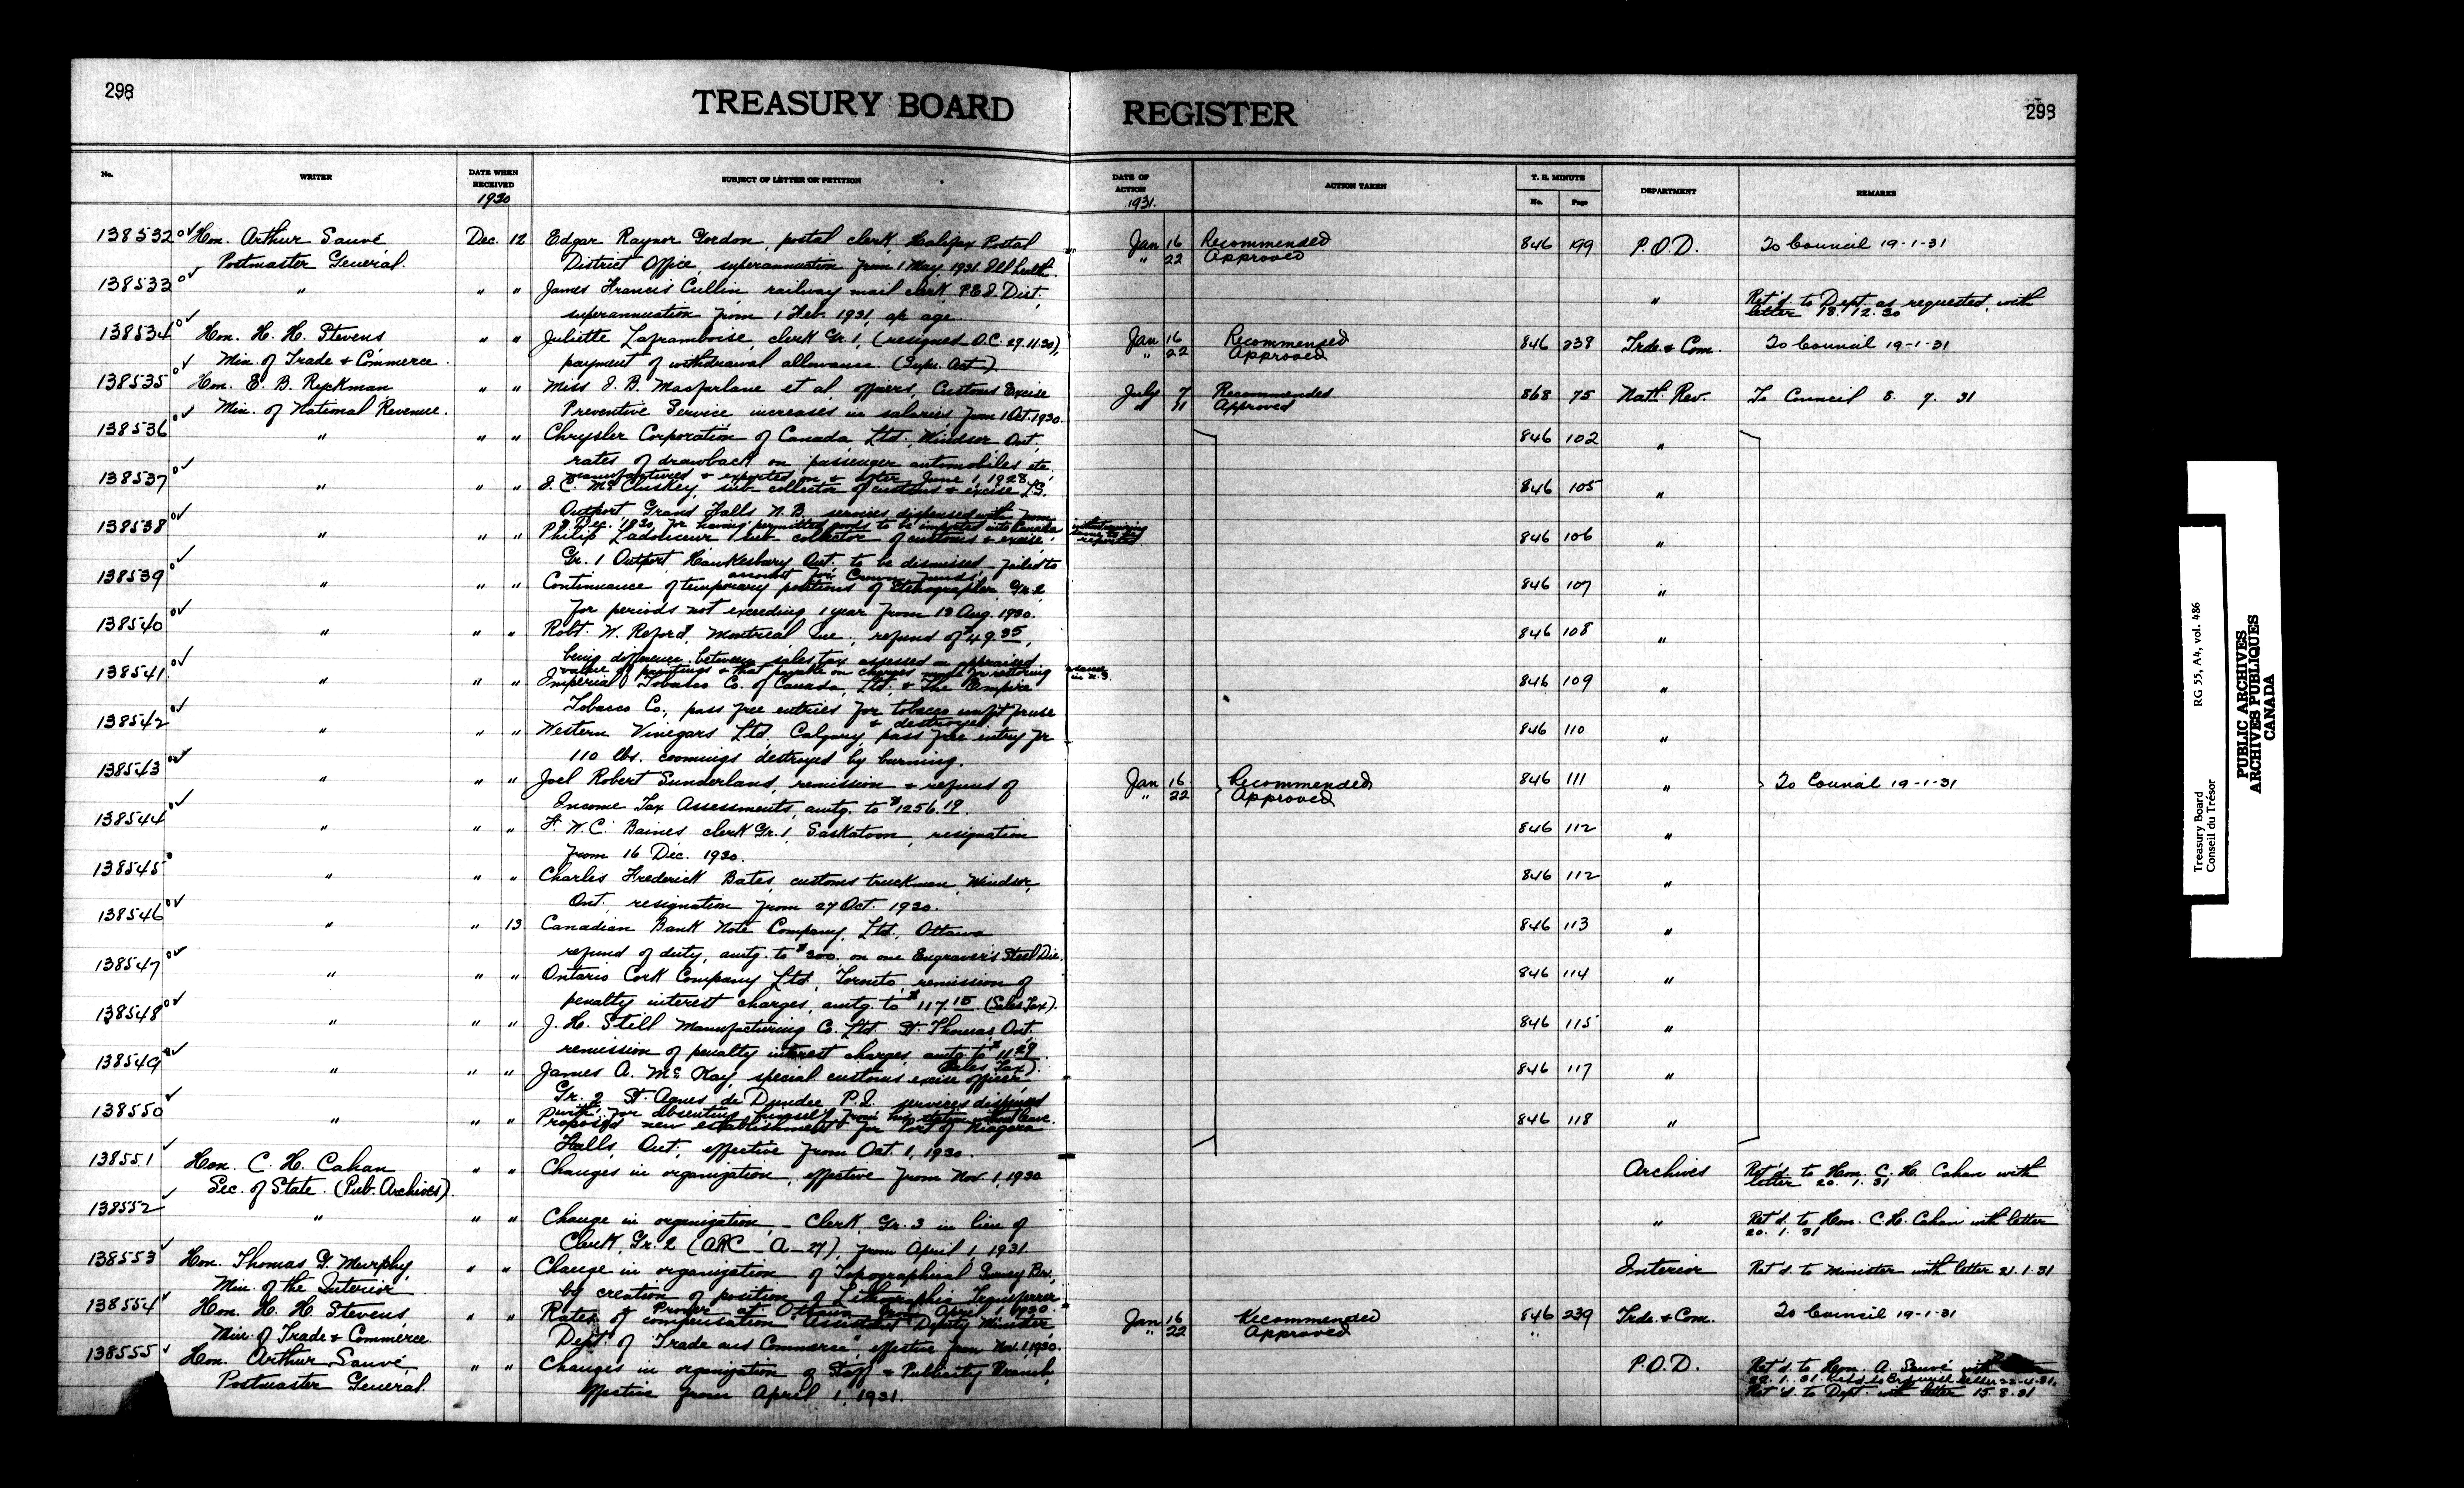 298
TREASURY BOARD REGISTER
298
No. WRITER DATE WHEN RECEIVED 1930 SUBJECT OF LETTER OR PETITION DATE OF ACTION 1931. ACTION TAKEN T. B. MINUTE No. Page DEPARTMENT REMARKS
138532 Hon. Arthur Sauvé, Dec. 12 Edgar Raynor Gordon, postal clerk, Halifax Postal Jan 16 Recommended 846 199 P.O.D. To Council 19-1-31
Postmaster General. District Office, superannuation from 1 May, 1931. Ill health. " 22 Approved
138533 " " " James Francis Cullin, railway mail clerk, P.E.I. Dist. " Ret'd. to Dept. as requested, with
superannuation from 1 Feb. 1931, ap age. letter 18.12.30
138534 Hon. H. H. Stevens " " Juliette Laframboise, clerk Gr. 1, (resigned O.C. 29.11.30), Jan 16 Recommended 846 238 Trde. & Com. To Council 19-1-31
Min. of Trade & Commerce. payment of withdrawal allowance. (Supr. Act). " 22 Approved
138535 Hon. E. B. Ryckman " " Miss J. B. Macfarlane et al, officers, Customs Excise July 7 Recommended 868 75 Natl. Rev. To Council 8. 7. 31
Min. of National Revenue. Preventive Service increases in salaries from 1 Oct. 1930. " 11 Approved
138536 " " " Chrysler Corporation of Canada Ltd., Windsor Ont., 846 102 "
rates of drawback on passenger automobiles etc.
manufactured & exported on & after June 1, 1928.
138537 " " " J. C. McCluskey, sub-collector of customs & excise 846 105 "
Outport Grand Falls N.B. services dispensed with from
9 Dec. 1930, for having permitted goods to be imported into Canada
reported
138538 " " " Philip Ladouceur sub-collector of customs & excise, 846 106 "
Gr. 1 Outport, Hawkesbury Ont. to be dismissed - failed to
account for Crown funds.
138539 " " " Continuance of temporary positions of Stenographer, Gr. 2, 846 107 "
for periods not exceeding 1 year from 13 Aug. 1930.
138540 " " " Robt. W. Reford, Montreal Que., refund of $49.35, 846 108 "
being difference between sales tax assessed on appraised
value of paintings & that payable on charges made for restoring
same in N.Y.
138541 " " " Imperial Tobacco Co. of Canada, Ltd. & The Empire 846 109 "
Tobacco Co., pass free entries for tobacco unfit for use
& destroyed
138542 " " " Western Vinegars Ltd. Calgary, pass free entry for 846 110 "
110 lbs. destroyed by burning.
138543 " " " Joel Robert Sunderland, remission & refund of Jan 16 Recommended 846 111 " To Council 19-1-31
Income Tax Assessments, amtg. to $1256.19. " 22 Approved
138544 " " " F. W. C. Baines clerk Gr. 1, Saskatoon, resignation 846 112 "
from 16 Dec. 1930.
138545 " " " Charles Frederick Bates, customs truckman, Windsor, 846 112 "
Ont., resignation from 27 Oct. 1930.
138546 " " 13 Canadian Bank Note Company, Ltd., Ottawa 846 113 "
refund of duty, amtg. to $300. on one Engraver's Steel Die.
138547 " " " Ontario Cork Company Ltd, Toronto, remission of 846 114 "
penalty interest charges, amtg. to $117.15 (Sales Tax).
138548 " " " J. H. Still Manufacturing Co. Ltd. St. Thomas Ont. 846 115 "
remission of penalty interest charges, amtg. to $11.29
(Sales Tax).
138549 " " " James A. McKay, special customs excise officer 846 117 "
Gr. 2 St. Agnes de Dundee P.Q. services dispensed
with for absenting himself from his station without leave.
138550 " " " Proposed new establishment for Port of Niagara 846 118 "
Falls, Ont., effective from Oct. 1, 1930.
138551 Hon. C. H. Cahan " " Changes in organization, effective from Nov. 1, 1930 Archives Ret'd. to Hon. C. H. Cahan with
Sec. of State. (Pub. Archives). letter 20. 1. 31
138552 " " " Change in organization, - Clerk, Gr. 3 in lieu of " Ret'd. to Hon. C.H. Cahan with letter
Clerk, Gr. 2 (ARC-A-27), from April 1, 1931. 20. 1. 31
138553 Hon. Thomas G. Murphy, " " Change in organization of Topographical Survey Br., Interior Ret'd. to Minister with letter 21.1.31
Min. of the Interior by creation of position of Lithographic Transferrer
& Prover at Ottawa from April 1, 1930.
138554 Hon. H. H. Stevens, " " Rates of compensation "Assistant Deputy Minister Jan 16 Recommended 846 239 Trde. & Com. To Council 19-1-31
Min. of Trade & Commerce. Dept. of Trade and Commerce", effective from Nov. 1, 1930. " 22 Approved
138555 Hon. Arthur Sauvé, " " Changes in organization of Staff & Publicity Branch, P.O.D. Ret'd. to Hon. A. Sauvé with
Postmaster General. effective from April 1, 1931. 22.1.31.
Ret'd. to Dept. with letter 15.8.31
Treasury Board RG 55, A4, vol. 486
Conseil du Trésor
PUBLIC ARCHIVES
ARCHIVES PUBLIQUES
CANADA